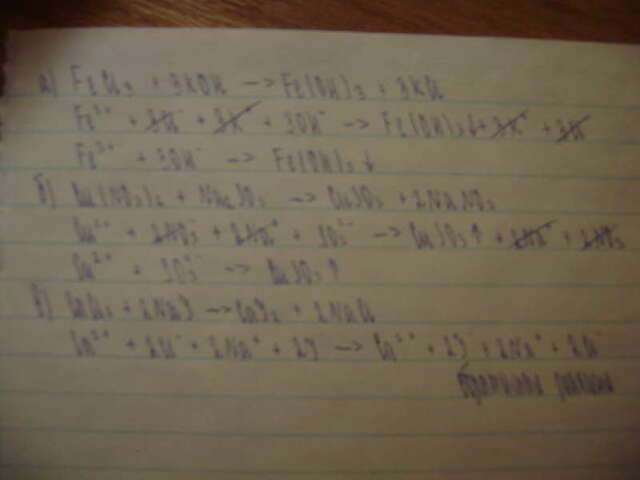 а) FeCl₃ + 3KOH → Fe(OH)₃ + 3KCl
Fe³⁺ + 3Cl⁻ + 3K⁺ + 3OH⁻ → Fe(OH)₃↓ + 3K⁺ + 3Cl⁻
Fe³⁺ + 3OH⁻ → Fe(OH)₃↓
б) Cu(NO₃)₂ + Na₂SO₃ → CuSO₃ + 2NaNO₃
Cu²⁺ + 2NO₃⁻ + 2Na⁺ + SO₃²⁻ → CuSO₃↑ + 2Na⁺ + 2NO₃⁻
Cu²⁺ + SO₃²⁻ → CuSO₃↑
в) CaCl₂ + 2NaJ → CaJ₂ + 2NaCl
Ca²⁺ + 2Cl⁻ + 2Na⁺ + 2J⁻ → Ca²⁺ + 2J⁻ + 2Na⁺ + 2Cl⁻
реакция